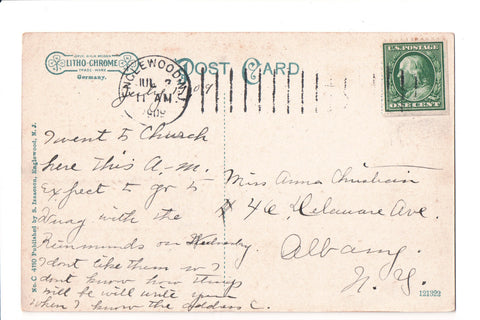 REG. U.S.A. DESIGN
LITHO-CHROME
TRADE MARK
Germany.
POST CARD
ENGLEWOOD, N.J.
JUL
11 AM
1909
U.S. POSTAGE
ONE CENT
I went to Church
here this A-M.
Expect to go to
with the
on Wednesday
I dont like them so I
dont know how things
will be will write you
when I know the address C.
Miss Anna Christian
# 46 Delaware Ave.
Albany
N. Y.
No. C 4180 Published by S. Isaacson, Englewood, N. J.
121322